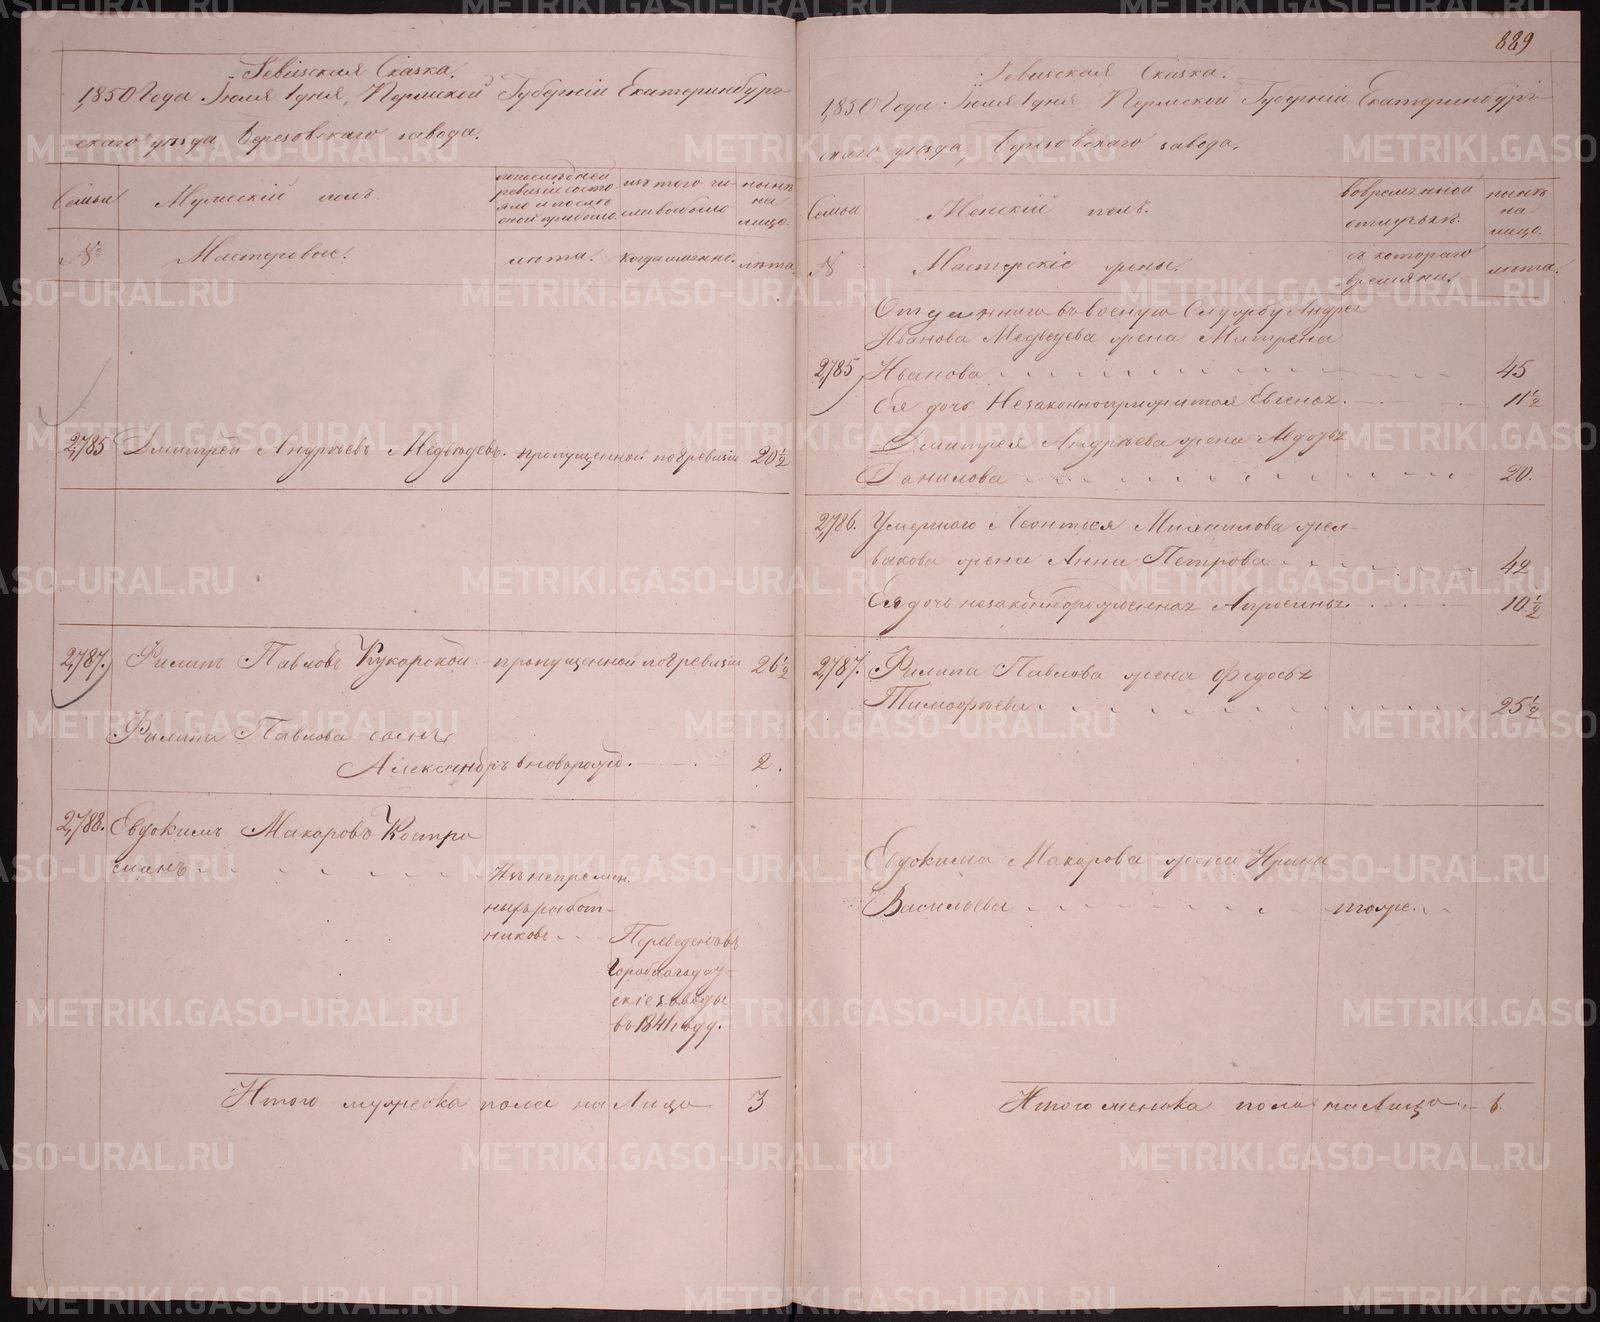 Ревизская Сказка.
1850 Года Іюля 1 дня, Пермской Губерніи Екатеринбург-
скаго уезда, Березовскаго завода.
Семьи
Мужескій полъ.
по последней
ревизіи состо
яло и после
оной прибыло.
изъ того чи-
сла выбыло
ныне
на
лицо.
№
Мастеровые.
лета.
когда именно.
лета
2785
Дмитрей Андреевъ Медведевъ. пропущенной по 8 ревизіи 20 ½
2787.
Филипъ Павловъ Кукарской. пропущенной по 8 ревизіи 26 ½
Филипа Павлова сынъ
Александръ вноворожд. 2.
2788.
Евдокимъ Макаровъ Костро
минъ
Изъ непремен
ныхъ работ-
никовъ
Переведенъ въ
Гороблагодат-
скіе заводы
въ 1841 году.
Итого мужеска пола на Лицо 3
889
Ревизская Сказка.
1850 Года Іюля 1 дня, Пермской Губерніи Екатеринбург-
скаго уезда, Березовскаго завода.
Семьи
Женскій полъ.
во временной
отлучке.
ныне
на
лицо.
№
Мастерскіе жены.
съ котораго
времяни.
лета.
Отданнаго въ военную Службу Андрея
Иванова Медведева жена Матрена
2785
Иванова 45
Ея дочь Незаконноприжитая Евгенья. 11 ½
Дмитрея Андреева жена Авдотья
Данилова 20.
2786.
Умершаго Леонтья Михаилова
жена Анна Петрова 42
Ея дочь незаконнорожденная Агрофена. 10 ½
2787.
Филипа Павлова жена Федосья
Тимофеева 25 ½
Евдокима Макарова жена Ирина
Васильева тоже.
Итого женска пола на Лицо 6.
METRIKI.GASO-URAL.RU